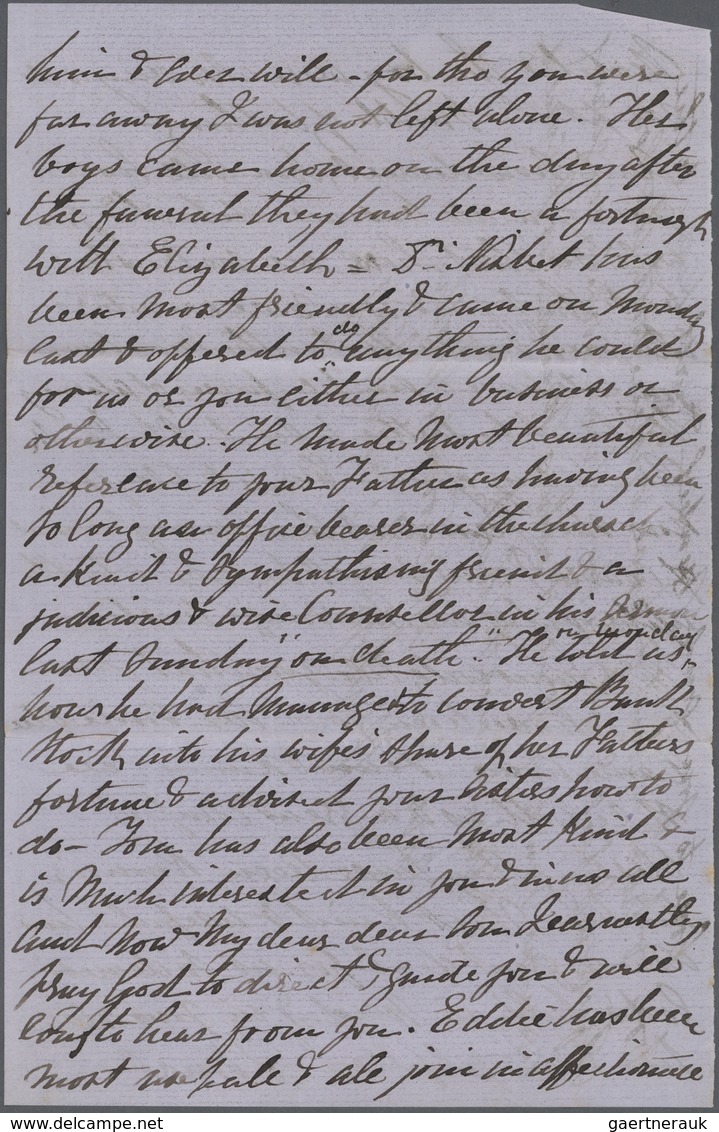 him & ever will - for tho you were
far away I was not left alone. Her
boys came home on the day after
the funeral they had been a fortnigh
with Elizabeth = Dr. Nisbet has
been most friendly & came on Monday
last & offered to do anything he could
for us or you either in business or
otherwise. He made most beautiful
reference to your Father as having been
so long an office bearer in the church
a kind & sympathising friend & a
judicious & wise Counsellor in his sermon
last Sunday "on death." He told us on monday
how he had managed to convert Bank
Stock into his wife's share of her Fathers
fortune & advised your sisters how to
do - Tom has also been most kind &
is much interested in you & in us all
and now my dear dear Son I earnestly
pray God to direct & guide you & will
long to hear from you. Eddie has been
most & all join in affectionate
gaertnerauk